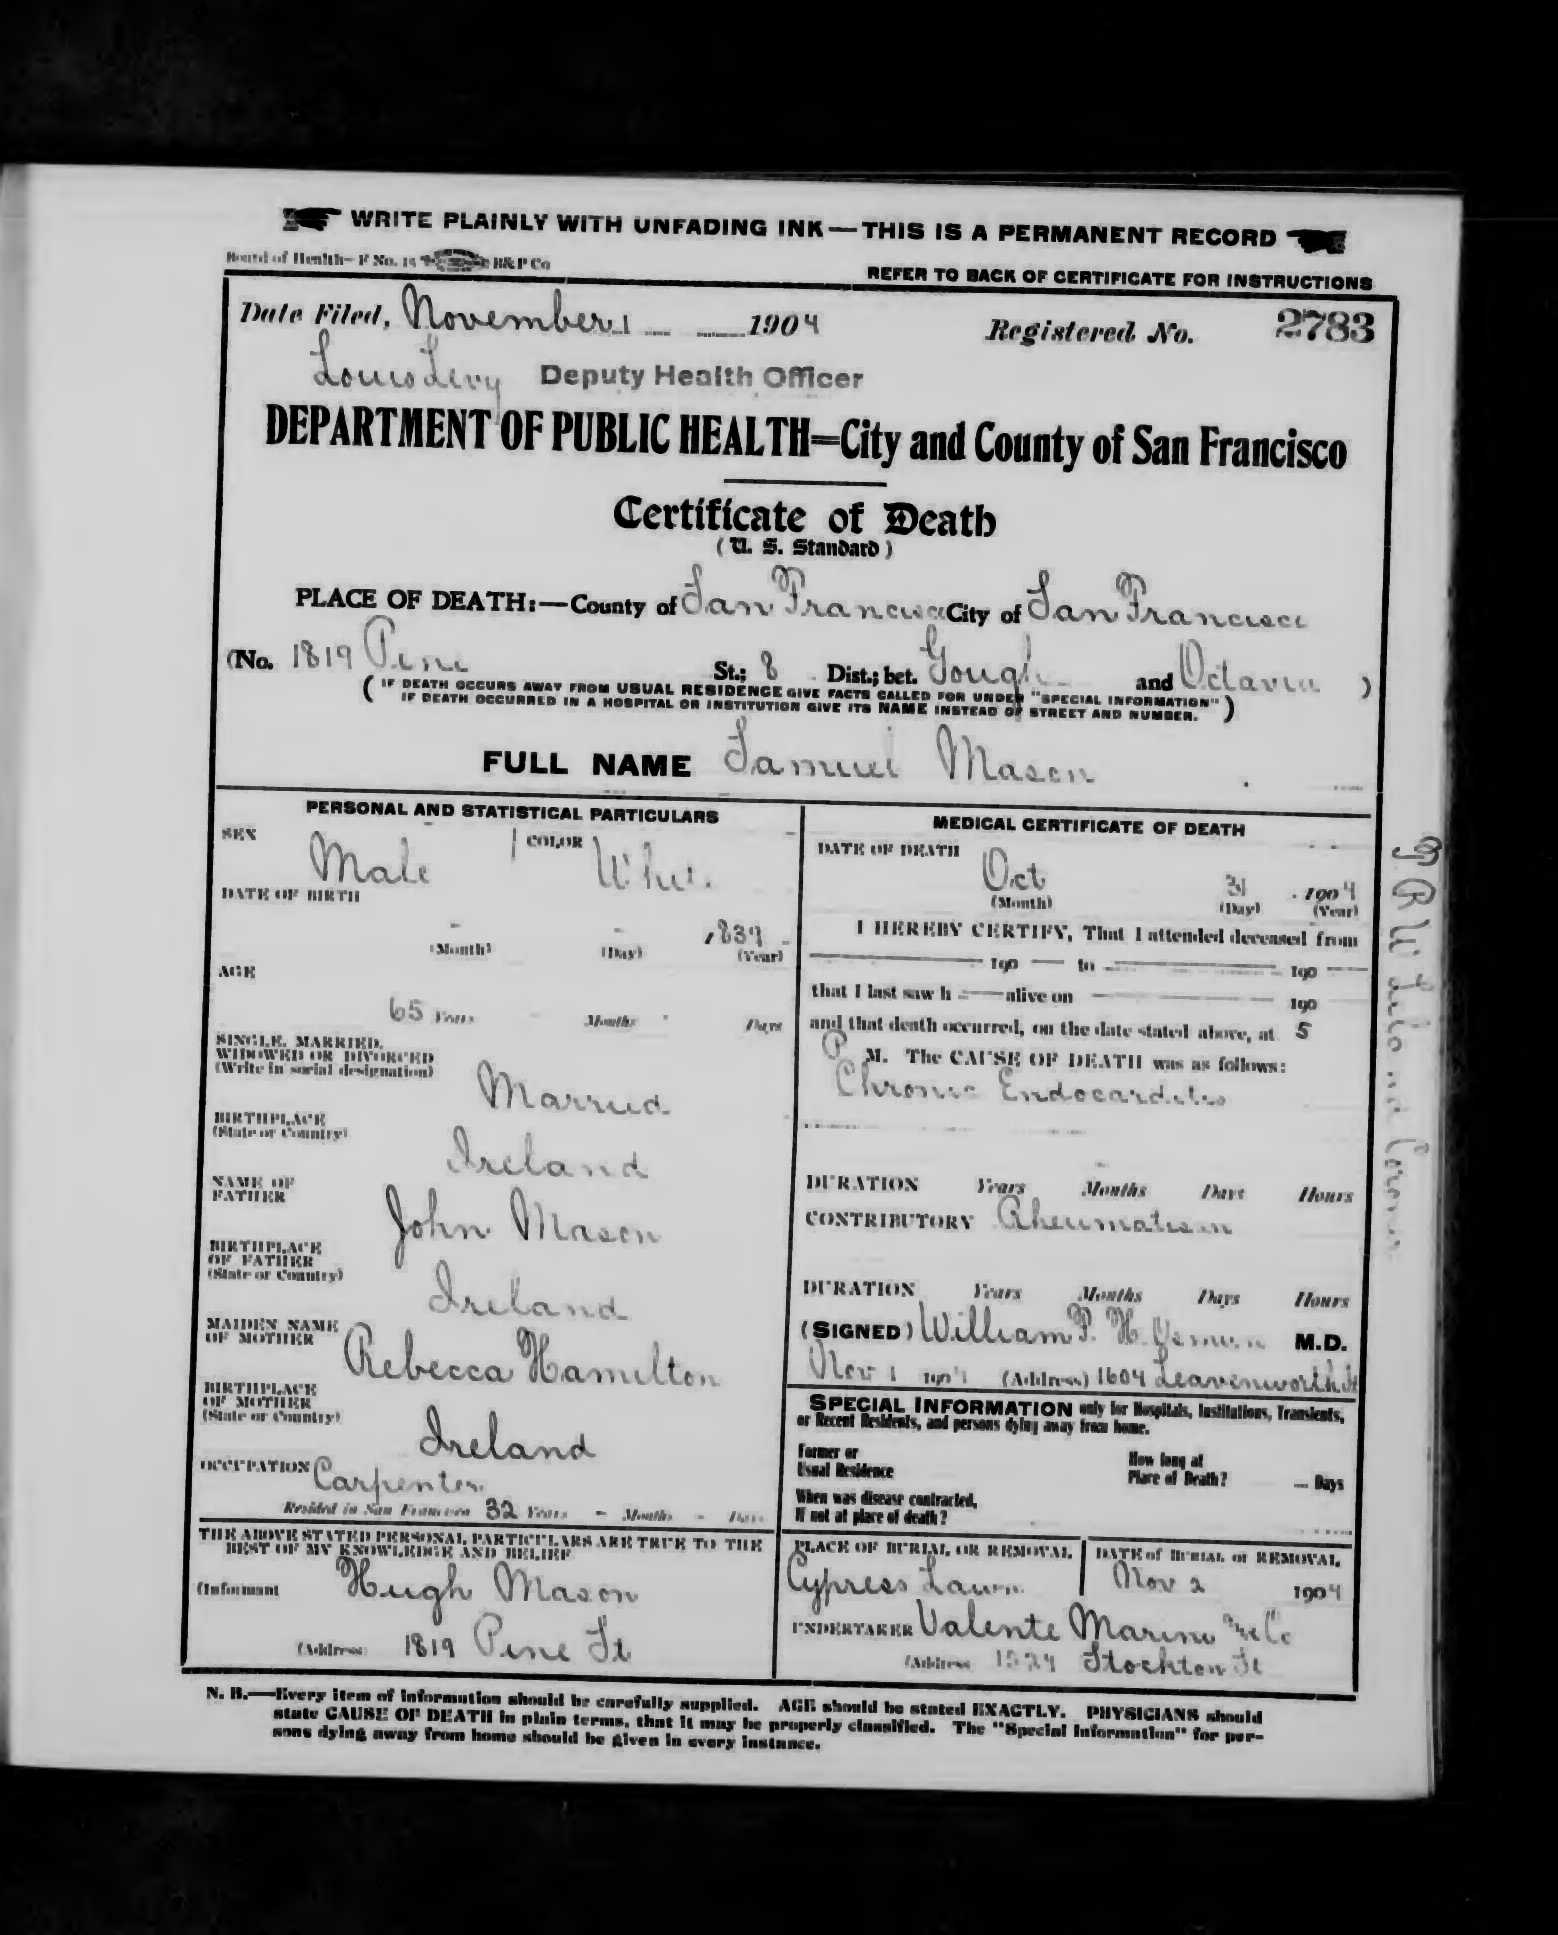 WRITE PLAINLY WITH UNFADING INK—THIS IS A PERMANENT RECORD
Board of Health—F No. 15 B&P Co
REFER TO BACK OF CERTIFICATE FOR INSTRUCTIONS
Date Filed, November 1 1904 Registered No. 2783
Louis Levy Deputy Health Officer
DEPARTMENT OF PUBLIC HEALTH=City and County of San Francisco
Certificate of Death
(U. S. Standard)
PLACE OF DEATH:—County of San Francisco City of San Francisco
(No. 1819 Pine St.; 8 Dist.; bet. Gough and Octavia )
(IF DEATH OCCURS AWAY FROM USUAL RESIDENCE GIVE FACTS CALLED FOR UNDER "SPECIAL INFORMATION"
IF DEATH OCCURRED IN A HOSPITAL OR INSTITUTION GIVE ITS NAME INSTEAD OF STREET AND NUMBER.)
FULL NAME Samuel Mason
PERSONAL AND STATISTICAL PARTICULARS
SEX Male COLOR Whi.
DATE OF BIRTH
- - 1839
(Month) (Day) (Year)
AGE
65 Years Months Days
SINGLE, MARRIED,
WIDOWED OR DIVORCED
(Write in social designation) Married
BIRTHPLACE
(State or Country) Ireland
NAME OF
FATHER John Mason
BIRTHPLACE
OF FATHER
(State or Country) Ireland
MAIDEN NAME
OF MOTHER Rebecca Hamilton
BIRTHPLACE
OF MOTHER
(State or Country) Ireland
OCCUPATION Carpenter
Resided in San Francisco 32 Years - Months - Days
THE ABOVE STATED PERSONAL PARTICULARS ARE TRUE TO THE
BEST OF MY KNOWLEDGE AND BELIEF
(Informant Hugh Mason
(Address 1819 Pine St
MEDICAL CERTIFICATE OF DEATH
DATE OF DEATH
Oct 31 1904
(Month) (Day) (Year)
I HEREBY CERTIFY, That I attended deceased from
190 — to — 190 —
that I last saw h — alive on — 190
and that death occurred, on the date stated above, at 5
P M. The CAUSE OF DEATH was as follows:
Chronic Endocarditis
DURATION Years Months Days Hours
CONTRIBUTORY Rheumatism
DURATION Years Months Days Hours
(SIGNED) William P. H. M.D.
Nov 1 1904 (Address) 1604 Leavenworth St
SPECIAL INFORMATION only for Hospitals, Institutions, Transients,
or Recent Residents, and persons dying away from home.
Former or
Usual Residence
How long at
Place of Death? — Days
When was disease contracted,
If not at place of death?
PLACE OF BURIAL OR REMOVAL
Cypress Lawn
DATE of BURIAL or REMOVAL
Nov 2 1904
UNDERTAKER Valente Marini & Co
(Address 1524 Stockton St
N. B.—Every item of information should be carefully supplied. AGE should be stated EXACTLY. PHYSICIANS should
state CAUSE OF DEATH in plain terms, that it may be properly classified. The "Special Information" for per-
sons dying away from home should be given in every instance.
Coroner